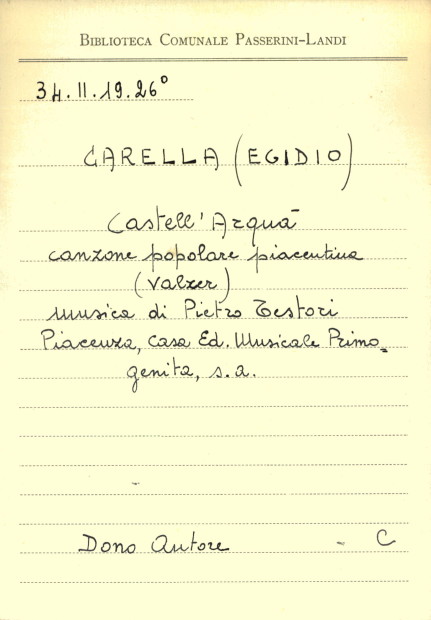 BIBLIOTECA COMUNALE PASSERINI-LANDI
34.II.19.26°
CARELLA (EGIDIO)
Castell'Arquà
canzone popolare piacentina
(Valzer)
musica di Pietro Testori
Piacenza, Casa Ed. Musicale Primo=
genita, s.a.
Dono Autore - C